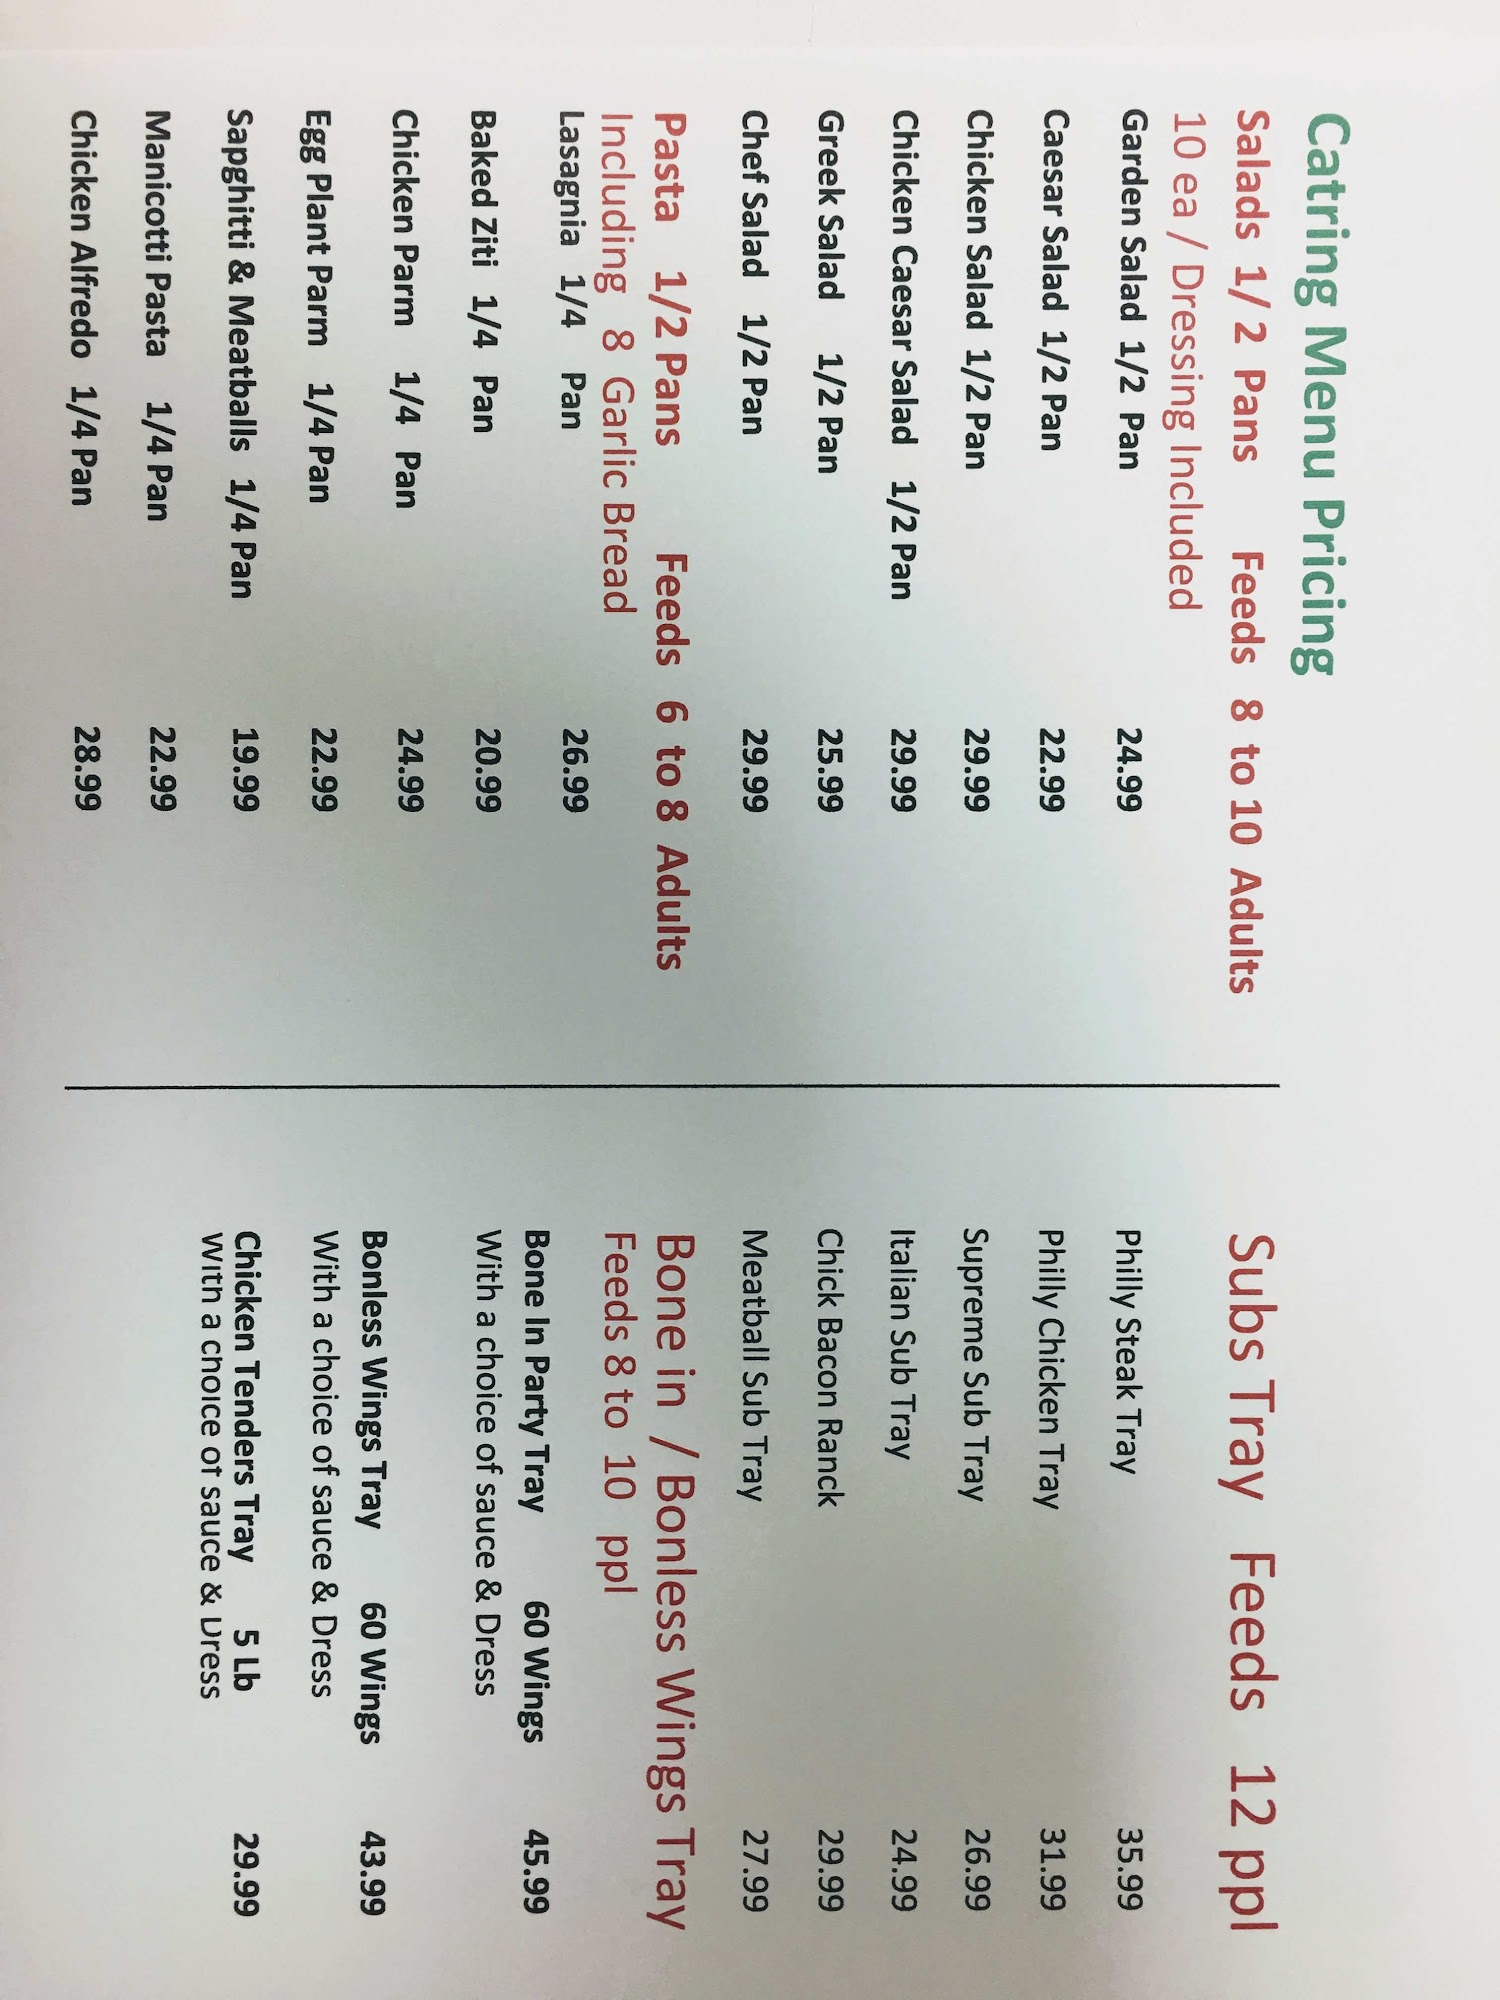 Catring Menu Pricing
Salads 1/2 Pans Feeds 8 to 10 Adults
10 ea / Dressing Included
Garden Salad 1/2 Pan 24.99
Caesar Salad 1/2 Pan 22.99
Chicken Salad 1/2 Pan 29.99
Chicken Caesar Salad 1/2 Pan 29.99
Greek Salad 1/2 Pan 25.99
Chef Salad 1/2 Pan 29.99
Pasta 1/2 Pans Feeds 6 to 8 Adults
Including 8 Garlic Bread
Lasagnia 1/4 Pan 26.99
Baked Ziti 1/4 Pan 20.99
Chicken Parm 1/4 Pan 24.99
Egg Plant Parm 1/4 Pan 22.99
Sapghitti & Meatballs 1/4 Pan 19.99
Manicotti Pasta 1/4 Pan 22.99
Chicken Alfredo 1/4 Pan 28.99
Subs Tray Feeds 12 ppl
Philly Steak Tray 35.99
Philly Chicken Tray 31.99
Supreme Sub Tray 26.99
Italian Sub Tray 24.99
Chick Bacon Ranck 29.99
Meatball Sub Tray 27.99
Bone in / Bonless Wings Tray
Feeds 8 to 10 ppl
Bone In Party Tray 60 Wings 45.99
With a choice of sauce & Dress
Bonless Wings Tray 60 Wings 43.99
With a choice of sauce & Dress
Chicken Tenders Tray 5 Lb 29.99
With a choice of sauce & Dress